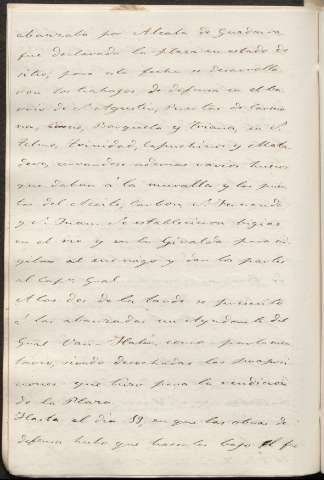 abanzaba por Alcala de Guadaira
fue declarada la plaza en estado de
sitio, para esta fecha se desarrolla
ron los trabajos de defensa en el ba
rrio de Sn Agustin, Puertas de Carmo
na, Barqueta y Triana, en Sn
Telmo, Trinidad, Capuchinos y Mata
dero, cerrandose ademas varios huecos
que daban á la muralla y los pos
tigos del Aceite, Carbon, Sn Fernando
y Sn Juan. Se establecieron bigias
en el rio y en la Giralda para vi
gilar al enemigo y dar los partes
al Capn Gral
A las dos de la tarde se presentó
á las abanzadas un Ayudante del
Gral Van-Halen, como parlamen
tario, siendo desechadas las proposi
ciones que hizo para la rendicion
de la Plaza.
Hasta el dia en que las obras de
defensa hubo que hacerlas bajo el fue